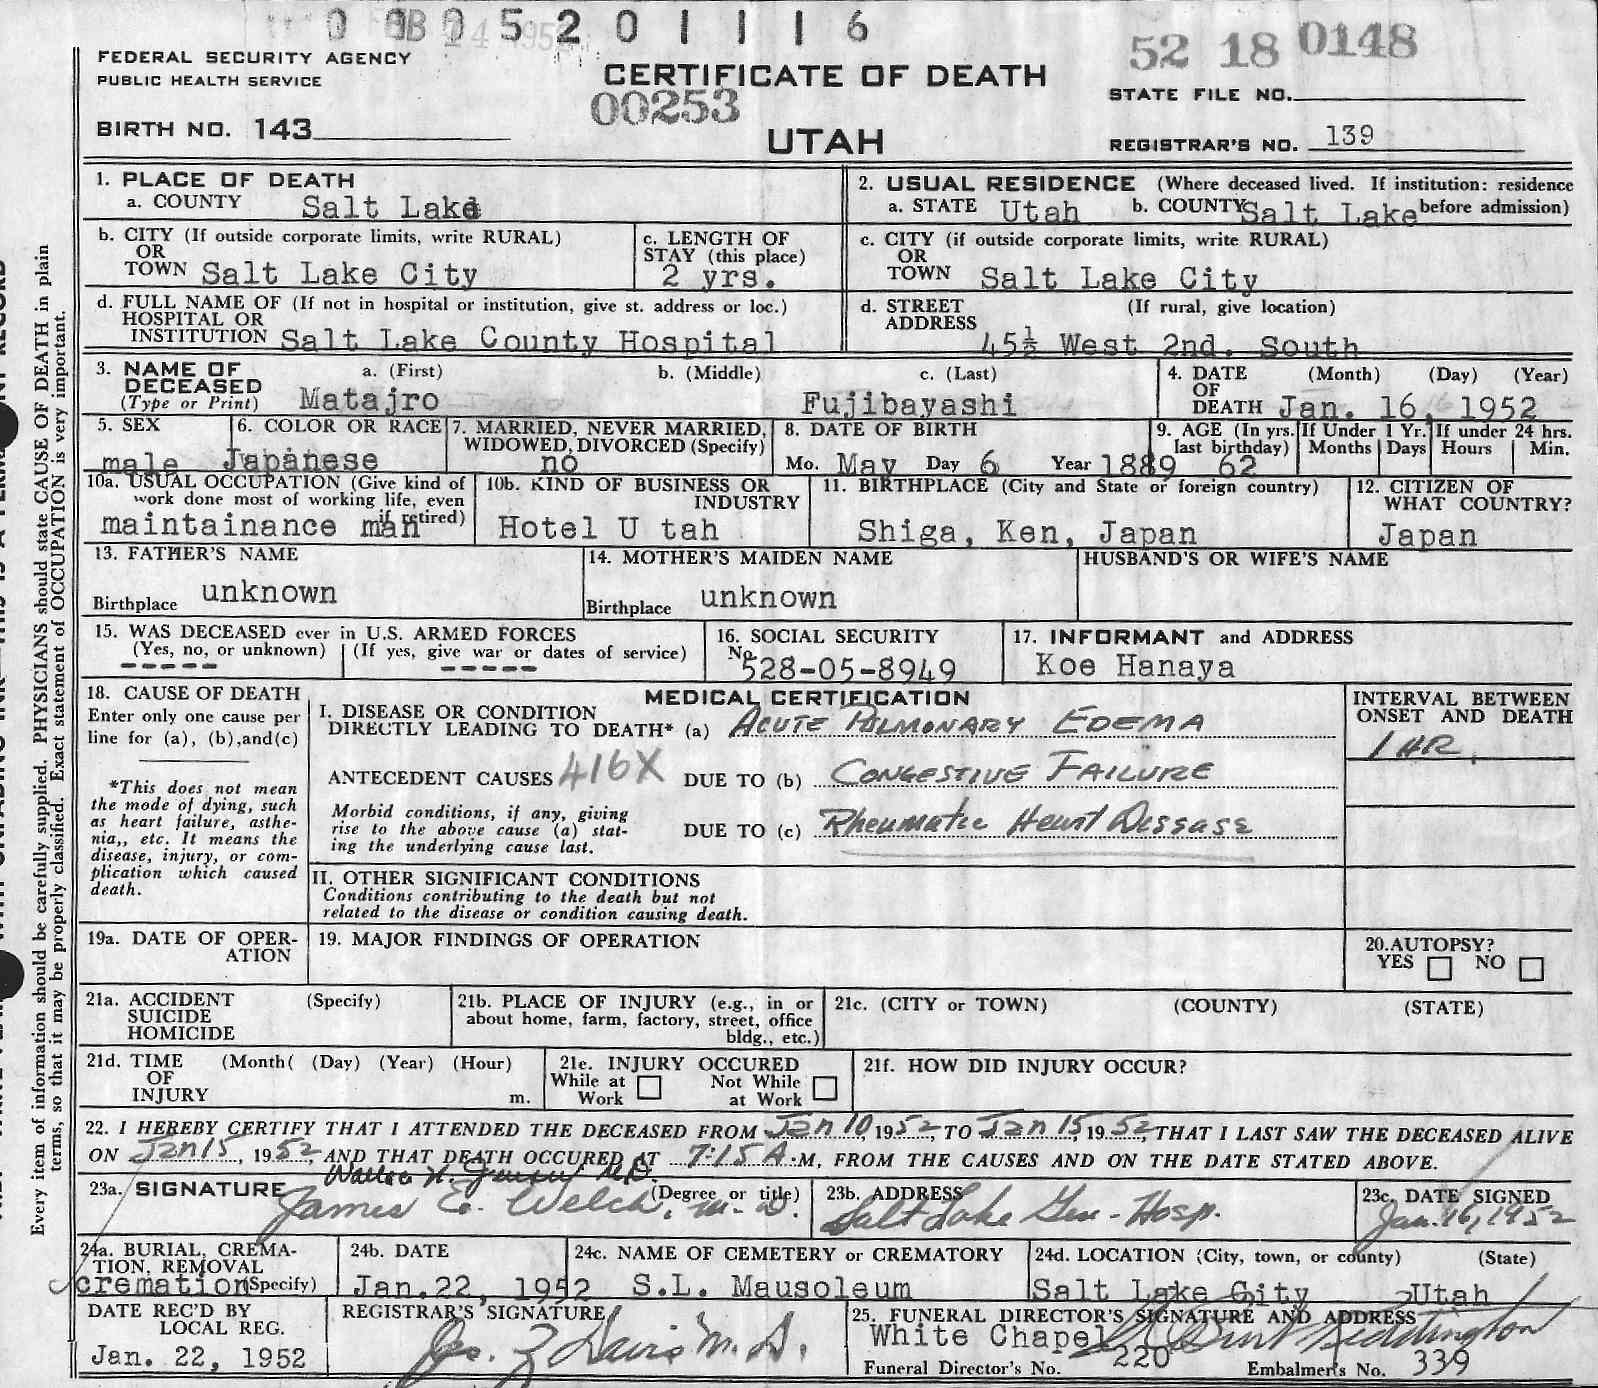 0 0 0 5 2 0 1 1 1 6
52 18 0148
FEDERAL SECURITY AGENCY
PUBLIC HEALTH SERVICE
CERTIFICATE OF DEATH
00253
UTAH
STATE FILE NO.
BIRTH NO. 143
REGISTRAR'S NO. 139
1. PLACE OF DEATH
a. COUNTY Salt Lake
2. USUAL RESIDENCE (Where deceased lived. If institution: residence before admission)
a. STATE Utah b. COUNTY Salt Lake
b. CITY (If outside corporate limits, write RURAL)
OR
TOWN Salt Lake City
c. LENGTH OF
STAY (this place)
2 yrs.
c. CITY (if outside corporate limits, write RURAL)
OR
TOWN Salt Lake City
d. FULL NAME OF (If not in hospital or institution, give st. address or loc.)
HOSPITAL OR
INSTITUTION Salt Lake County Hospital
d. STREET (If rural, give location)
ADDRESS
45½ West 2nd. South
3. NAME OF
DECEASED
(Type or Print)
a. (First) b. (Middle) c. (Last)
Matajro Fujibayashi
4. DATE (Month) (Day) (Year)
OF
DEATH Jan. 16, 1952
5. SEX
male
6. COLOR OR RACE
Japanese
7. MARRIED, NEVER MARRIED,
WIDOWED, DIVORCED (Specify)
no
8. DATE OF BIRTH
Mo. May Day 6 Year 1889
9. AGE (In yrs.
last birthday)
62
If Under 1 Yr.
Months Days
If under 24 hrs.
Hours Min.
10a. USUAL OCCUPATION (Give kind of
work done most of working life, even
if retired)
maintainance man
10b. KIND OF BUSINESS OR
INDUSTRY
Hotel U tah
11. BIRTHPLACE (City and State or foreign country)
Shiga, Ken, Japan
12. CITIZEN OF
WHAT COUNTRY?
Japan
13. FATHER'S NAME
unknown
Birthplace
14. MOTHER'S MAIDEN NAME
unknown
Birthplace
HUSBAND'S OR WIFE'S NAME
15. WAS DECEASED ever in U.S. ARMED FORCES
(Yes, no, or unknown) (If yes, give war or dates of service)
----- -----
16. SOCIAL SECURITY
No. 528-05-8949
17. INFORMANT and ADDRESS
Koe Hanaya
18. CAUSE OF DEATH
Enter only one cause per
line for (a), (b), and (c)
*This does not mean
the mode of dying, such
as heart failure, asthe-
nia,, etc. It means the
disease, injury, or com-
plication which caused
death.
MEDICAL CERTIFICATION
I. DISEASE OR CONDITION
DIRECTLY LEADING TO DEATH* (a) ACUTE PULMONARY EDEMA
ANTECEDENT CAUSES 416X DUE TO (b) CONGESTIVE FAILURE
Morbid conditions, if any, giving
rise to the above cause (a) stat-
ing the underlying cause last.
DUE TO (c) Rheumatic Heart Disease
INTERVAL BETWEEN
ONSET AND DEATH
1 HR.
II. OTHER SIGNIFICANT CONDITIONS
Conditions contributing to the death but not
related to the disease or condition causing death.
19a. DATE OF OPER-
ATION
19. MAJOR FINDINGS OF OPERATION
20. AUTOPSY?
YES NO
21a. ACCIDENT (Specify)
SUICIDE
HOMICIDE
21b. PLACE OF INJURY (e.g., in or
about home, farm, factory, street, office
bldg., etc.)
21c. (CITY or TOWN) (COUNTY) (STATE)
21d. TIME (Month( (Day) (Year) (Hour)
OF
INJURY m.
21e. INJURY OCCURED
While at Work Not While at Work
21f. HOW DID INJURY OCCUR?
22. I HEREBY CERTIFY THAT I ATTENDED THE DECEASED FROM Jan 10, 1952, TO Jan 15, 1952, THAT I LAST SAW THE DECEASED ALIVE
ON Jan 15, 1952, AND THAT DEATH OCCURED AT 7:15 A.M, FROM THE CAUSES AND ON THE DATE STATED ABOVE.
M.D.
23a. SIGNATURE (Degree or title)
James E. Welch, M.D.
23b. ADDRESS
Salt Lake Gen. Hosp.
23c. DATE SIGNED
Jan. 16, 1952
24a. BURIAL, CREMA-
TION, REMOVAL
cremation (Specify)
24b. DATE
Jan. 22, 1952
24c. NAME OF CEMETERY or CREMATORY
S.L. Mausoleum
24d. LOCATION (City, town, or county) (State)
Salt Lake City Utah
DATE REC'D BY
LOCAL REG.
Jan. 22, 1952
REGISTRAR'S SIGNATURE
Davis M.D.
25. FUNERAL DIRECTOR'S SIGNATURE AND ADDRESS
White Chapel
Funeral Director's No. 220 Embalmer's No. 339
Every item of information should be carefully supplied. PHYSICIANS should state CAUSE OF DEATH in plain
terms, so that it may be properly classified. Exact statement of OCCUPATION is very important.